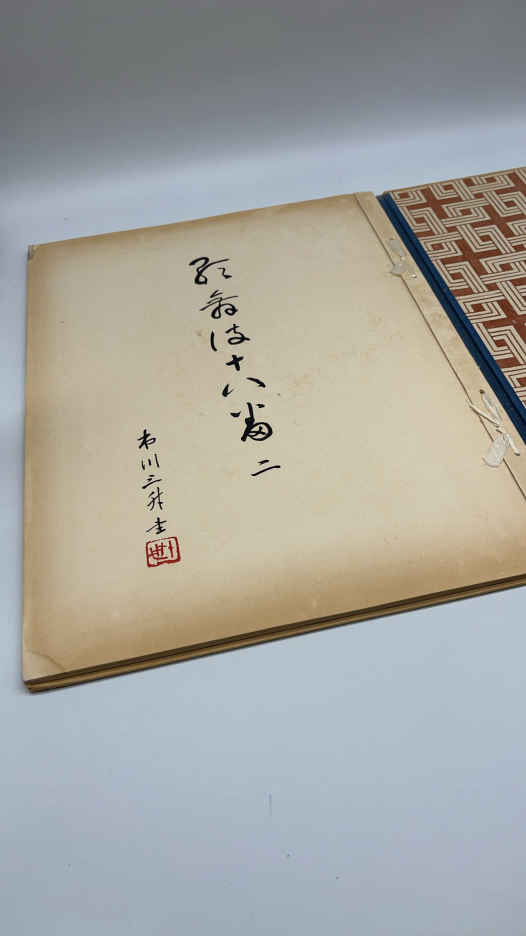 歌舞伎十八番 二
市川三升書
十世